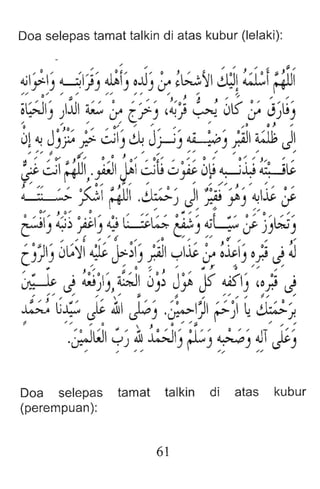 Doa selepas tamat talkin di atas kubur (lelaki):
اَللّٰهُمَّ أَسْلَمَهُ إِلَيْكَ الأَشِحَّاءُ مِنْ وَلَدِهِ وَأَهْلِهِ وَقَرَابَتِهِ وَإِخْوَانِهِ
وَفَارَقَ مَنْ كَانَ يُحِبُّ قُرْبَهُ، وَخَرَجَ مِنْ سَعَةِ الدَّارِ وَالْحَيَاةِ
إِلَى ظُلْمَةِ الْقَبْرِ وَضِيْقِهِ وَنَزَلَ بِكَ وَأَنْتَ خَيْرُ مَنْزُوْلٍ بِهِ إِنْ
عَاقَبْتَهُ فَبِذَنْبِهِ وَإِنْ عَفَوْتَ فَأَنْتَ أَهْلُ الْعَفْوِ. اَللّٰهُمَّ أَنْتَ غَنِيٌّ
عَنْ عَذَابِهِ وَهُوَ فَقِيْرٌ إِلَى رَحْمَتِكَ. اَللّٰهُمَّ اشْكُرْ حَسَنَتَهُ
وَتَجَاوَزْ عَنْ سَيِّئَتِهِ وَشَفِّعْ جَمَاعَتَنَا فِيْهِ وَاغْفِرْ ذَنْبَهُ وَافْسَحْ
لَهُ فِي قَبْرِهِ وَأَعِذْهُ مِنْ عَذَابِ الْقَبْرِ وَأَدْخِلْ عَلَيْهِ الأَمَانَ وَالرَّوْحَ
فِي قَبْرِهِ، وَاكْفِهِ كُلَّ هَوْلٍ دُوْنَ الْجَنَّةِ، وَارْفَعْهُ فِي عِلِّيِّيْنَ
بِرَحْمَتِكَ يَا أَرْحَمَ الرَّاحِمِيْنَ. وَصَلَّى اللهُ عَلَى سَيِّدِنَا مُحَمَّدٍ
وَعَلَى آلِهِ وَصَحْبِهِ وَسَلَّمَ وَالْحَمْدُ لِلّٰهِ رَبِّ الْعَالَمِيْنَ.
Doa selepas tamat talkin di atas kubur
(perempuan):
61